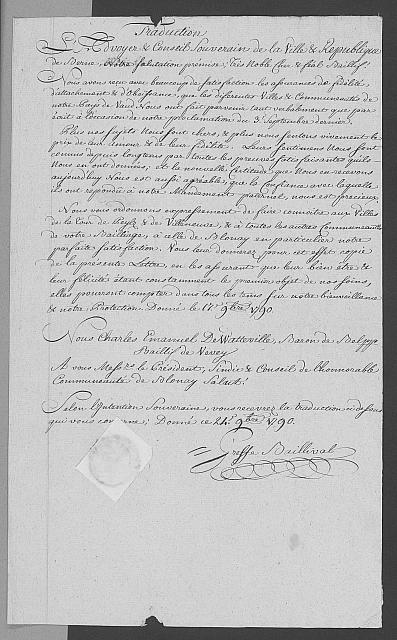 Traduction
L'Advoyer & Conseil Souverain de la Ville & Republique
de Berne, Notre Salutation prémise; Très Noble Cher & féal Baillif!
Nous avons reçu avec beaucoup de satisfaction les assurances de fidélité
d'attachement & d'obeissance, que les differentes Villes & Communautés de
notre Païs de Vaud Nous ont fait parvenir tant verbalement que par
écrit à l'occasion de notre proclamation du 3e Septembre dernier.
Plus nos sujets Nous sont chers, & plus nous sentons vivement le
prix de leur amour & de leur fidélité. Leurs sentimens Nous sont
connus depuis longtems par toutes les preuves satisfaisantes qu'ils
Nous en ont données; et la nouvelle certitude que Nous en recevons
aujourdhuy Nous est aussi agréable, que la confiance avec laquelle
ils ont répondu à notre Mandement paternel, nous est precieuse.
Nous vous ordonnons expressément de faire connoitre aux Villes
de la Tour de Peylz & de Villeneuve, & à toutes les autres Communautés
de votre Bailliage, à celle de Blonay en particulier notre
parfaite satisfaction. Vous leur donnerez pour cet effet copie
de la présente Lettre, en les assurant que leur bien être &
leur félicité étant constamment le premier objet de nos soins,
elles pourront compter dans tous les tems sur notre bienveillance
& notre Protection. Donné le 17e 9bre 1790.
Nous Charles Emanuel De Watteville, Baron de Belpp
Baillif de Vevey
A vous Messrs le Président, Sindic & Conseil de l'honorable
Communauté de Blonay Salut!
Selon l'Intention Souveraine, vous recevrez la traduction ci dessus
qui vous concerne; Donné ce 24e 9bre 1790.
Greffe Baillival